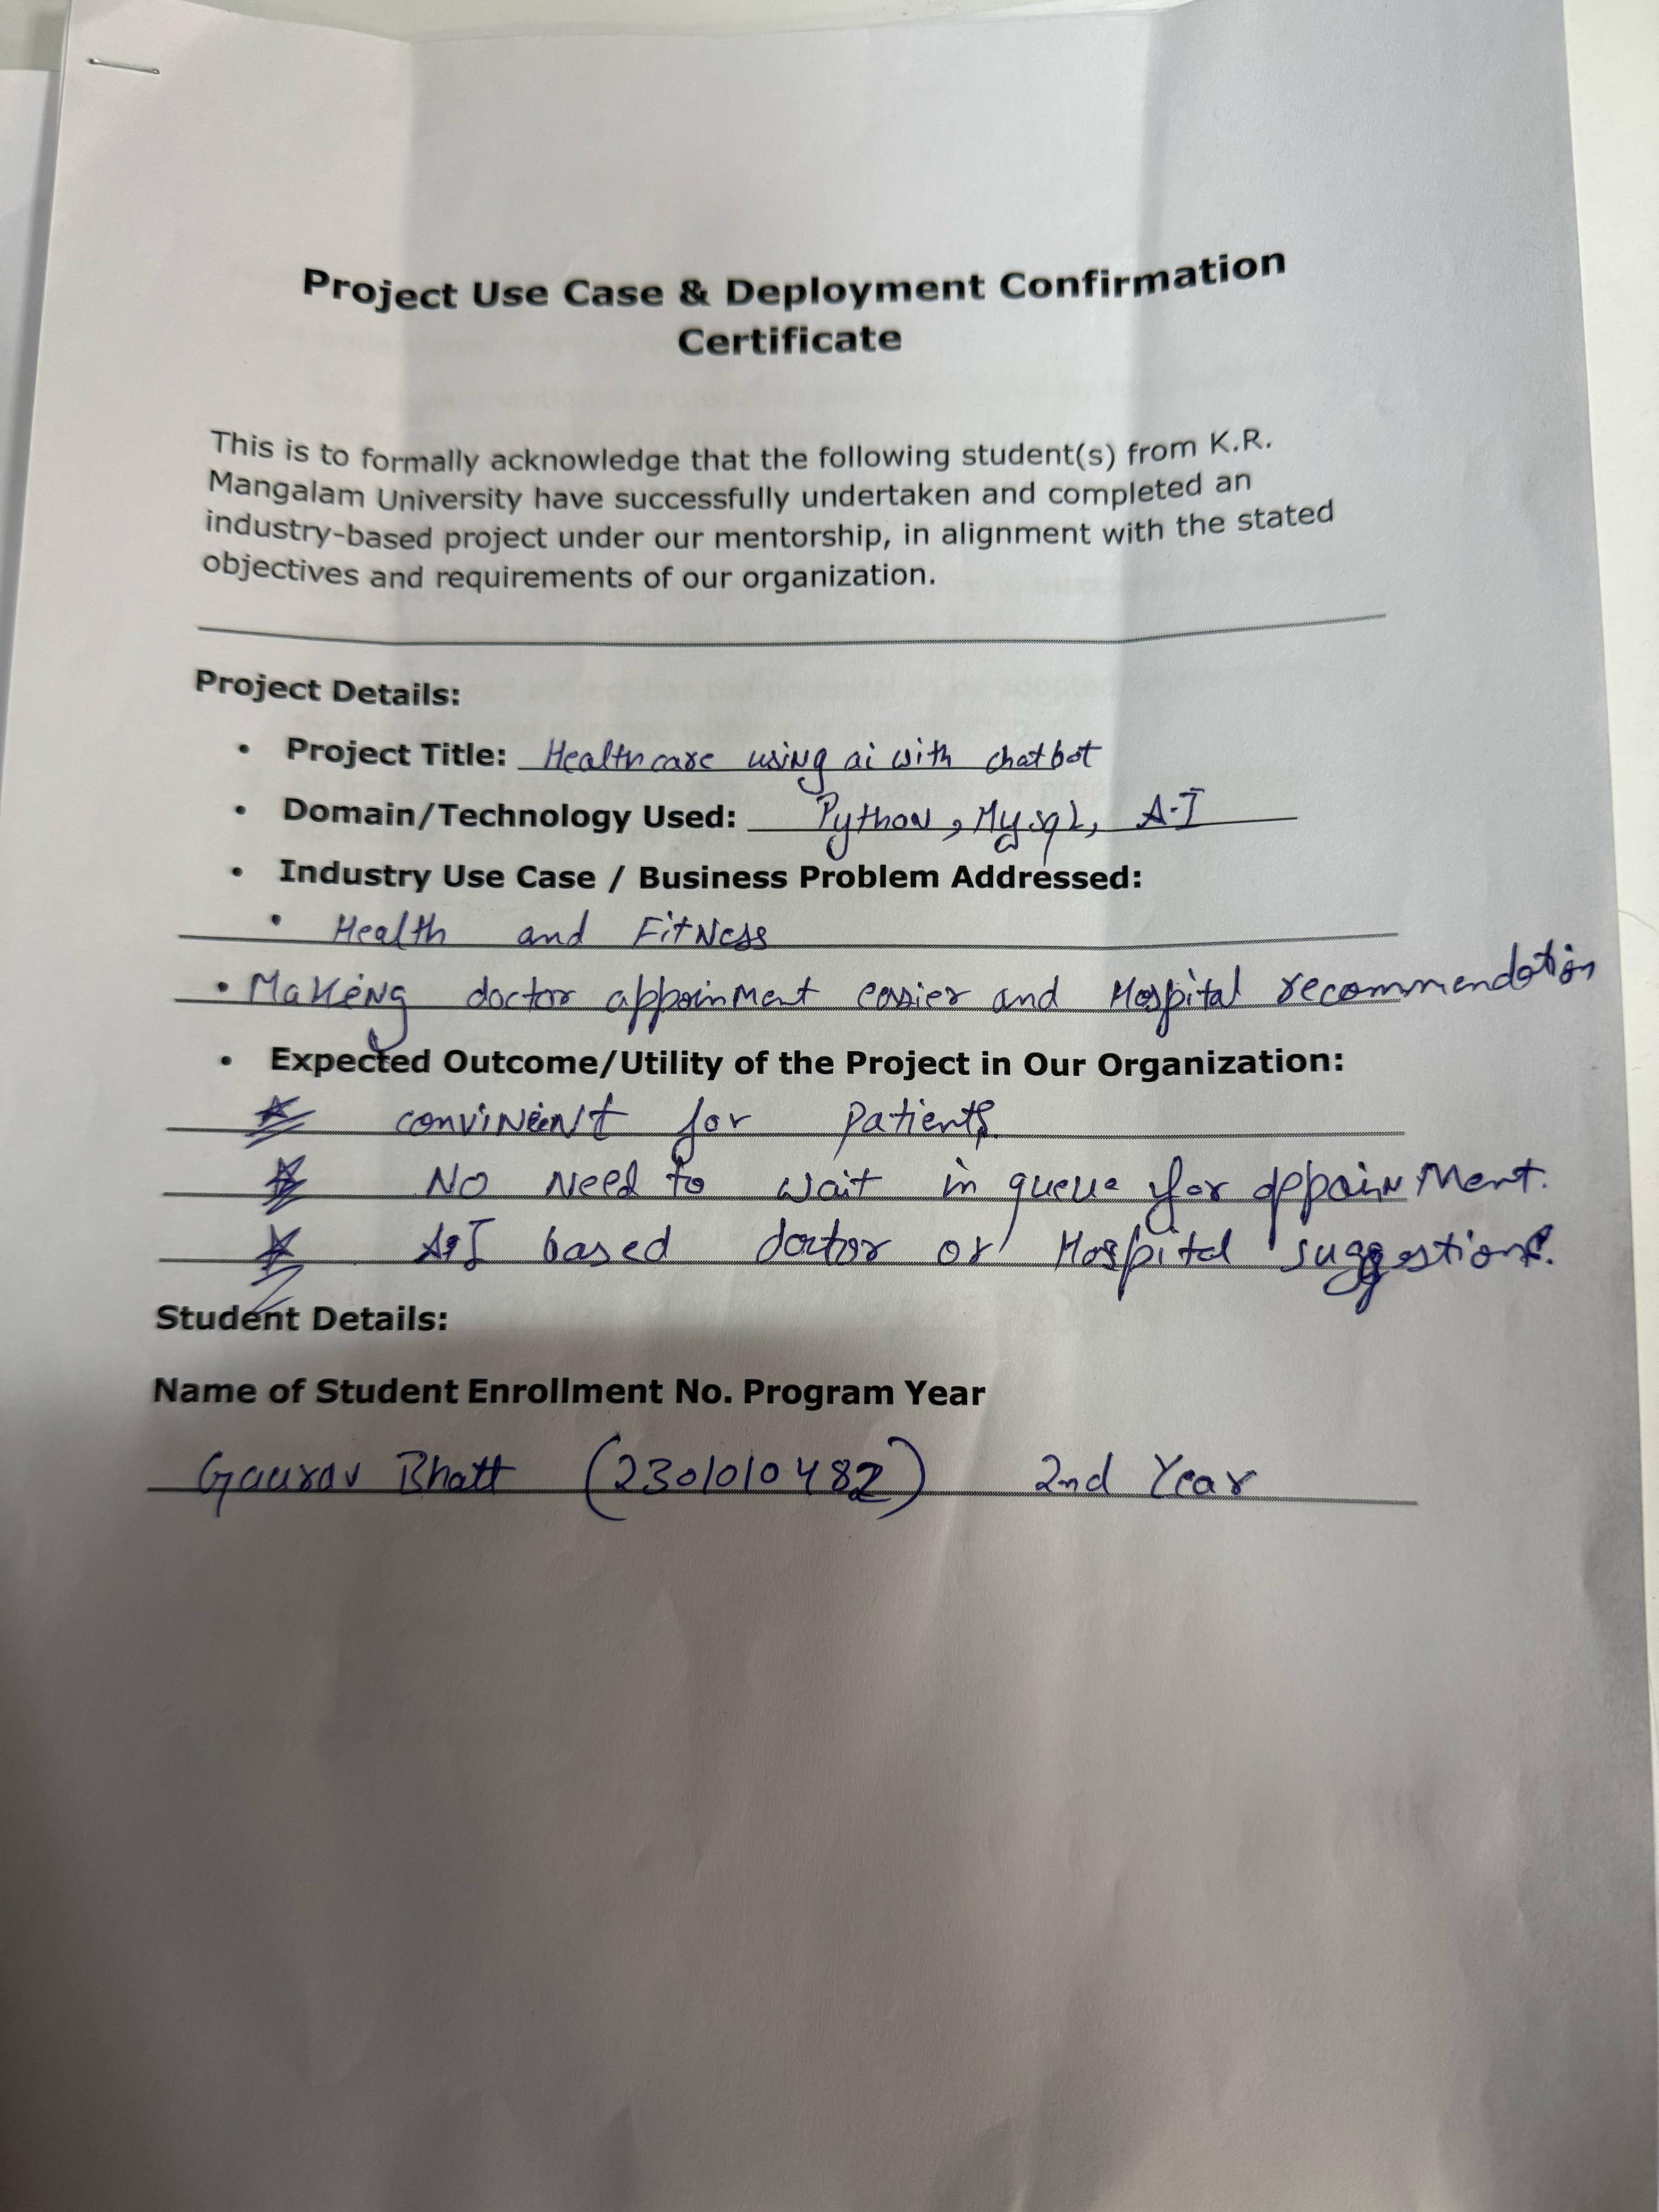 Project Use Case & Deployment Confirmation
Certificate
This is to formally acknowledge that the following student(s) from K.R.
Mangalam University have successfully undertaken and completed an
industry-based project under our mentorship, in alignment with the stated
objectives and requirements of our organization.
Project Details:
• Project Title: Healthcare using ai with chatbot
• Domain/Technology Used: Python, Mysql, A.I
• Industry Use Case / Business Problem Addressed:
• Health and Fitness
• Making doctor appoinment easier and Hospital recommendation
• Expected Outcome/Utility of the Project in Our Organization:
convinient for patients
No need to wait in queue for appoinment.
A.I based doctor or Hospital suggestions.
Student Details:
Name of Student Enrollment No. Program Year
Gaurav Bhatt (2301010482) 2nd Year